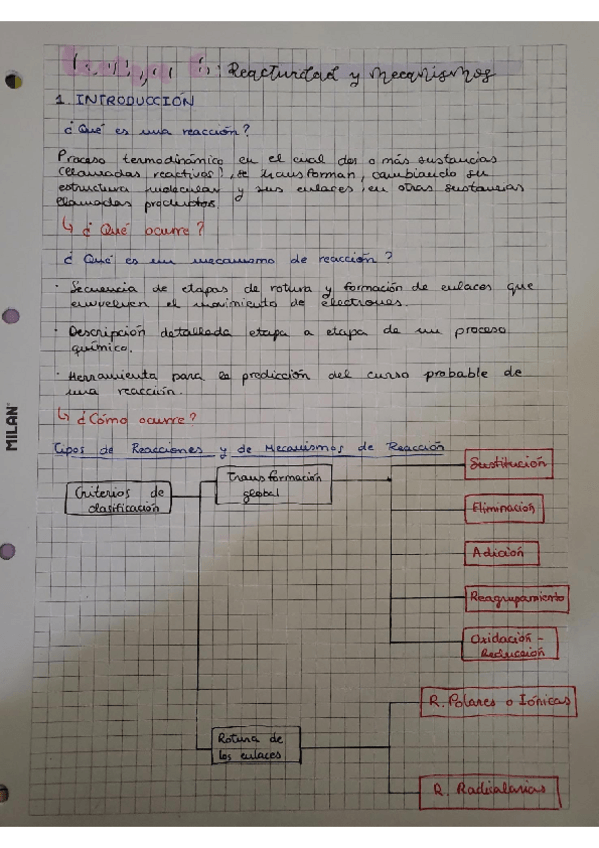 : Reactividad y Mecanismos
1. INTRODUCCIÓN
¿Qué es una reacción?
Proceso termodinámico en el cual dos o más sustancias
(llamadas reactivos), se transforman, cambiando su
estructura molecular y sus enlaces, en otras sustancias
llamadas productos.
↳ ¿Qué ocurre?
¿Qué es un mecanismo de reacción?
· Secuencia de etapas de rotura y formación de enlaces que
envuelven el movimiento de electrones.
· Descripción detallada etapa a etapa de un proceso
químico.
· Herramienta para la predicción del curso probable de
una reacción.
↳ ¿Cómo ocurre?
MILAN
Tipos de Reacciones y de Mecanismos de Reacción
Criterios de
clasificación
Transformación
global
Sustitución
Eliminación
Adición
Reagrupamiento
Oxidación -
Reducción
Rotura de
los enlaces
R. Polares o Iónicas
R. Radicalarias